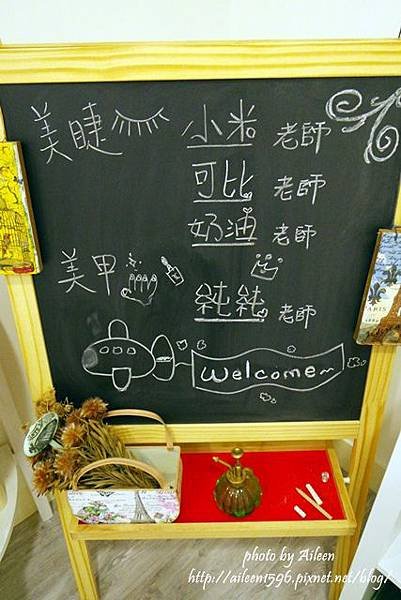 美睫 小米 老師
可比 老師
奶油 老師
美甲
純純 老師
Welcome~
PARIS
photo by Aileen
http://aileen1596.pixnet.net/blog/